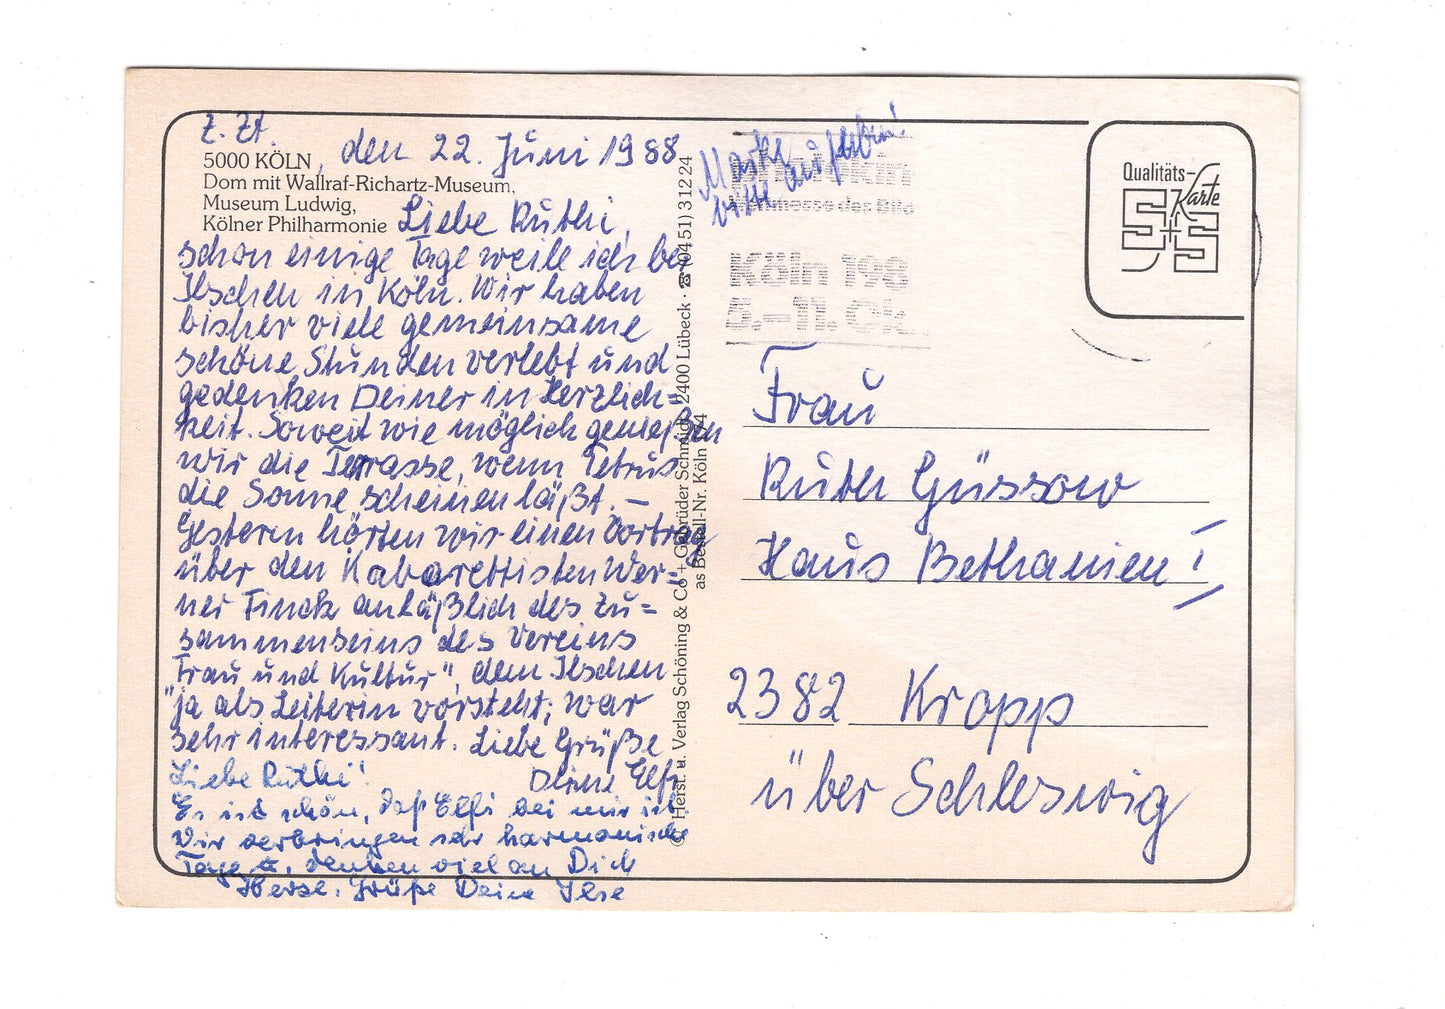 z. Zt.
5000 KÖLN, den 22. Juni 1988
Dom mit Wallraf-Richartz-Museum,
Museum Ludwig,
Kölner Philharmonie
Liebe Ruthi,
schon einige Tage weile ich bei
Ilschen in Köln. Wir haben
bisher viele gemeinsame
schöne Stunden verlebt und
gedenken Deiner in Herzlich=
keit. Soweit wie möglich genießen
wir die Terrasse, wenn Petrus
die Sonne scheinen läßt. –
Gestern hörten wir einen Vortrag
über den Kabarettisten Wer=
ner Finck anläßlich des Zu=
sammenseins des Vereins
"Frau und Kultur", dem Ilschen
ja als Leiterin vorsteht; war
sehr interessant. Liebe Grüße
Deine Elfi
Liebe Ruthi!
Es ist schön, daß Elfi bei mir ist.
Wir verbringen sehr harmonische
Tage u. denken viel an Dich
Herzl. Grüße Deine Ilse
© Herst. u. Verlag Schöning & Co + Gebrüder Schmidt, 2400 Lübeck · ☎ (0451) 31224
as Bestell-Nr. Köln
Marke
bitte aufheben!
messe des Bild
Köln 198
5.–11. Ok
Qualitäts-
Karte
S+S
Frau
Ruth Güssow
Haus Bethanien!
2382 Kropp
über Schleswig